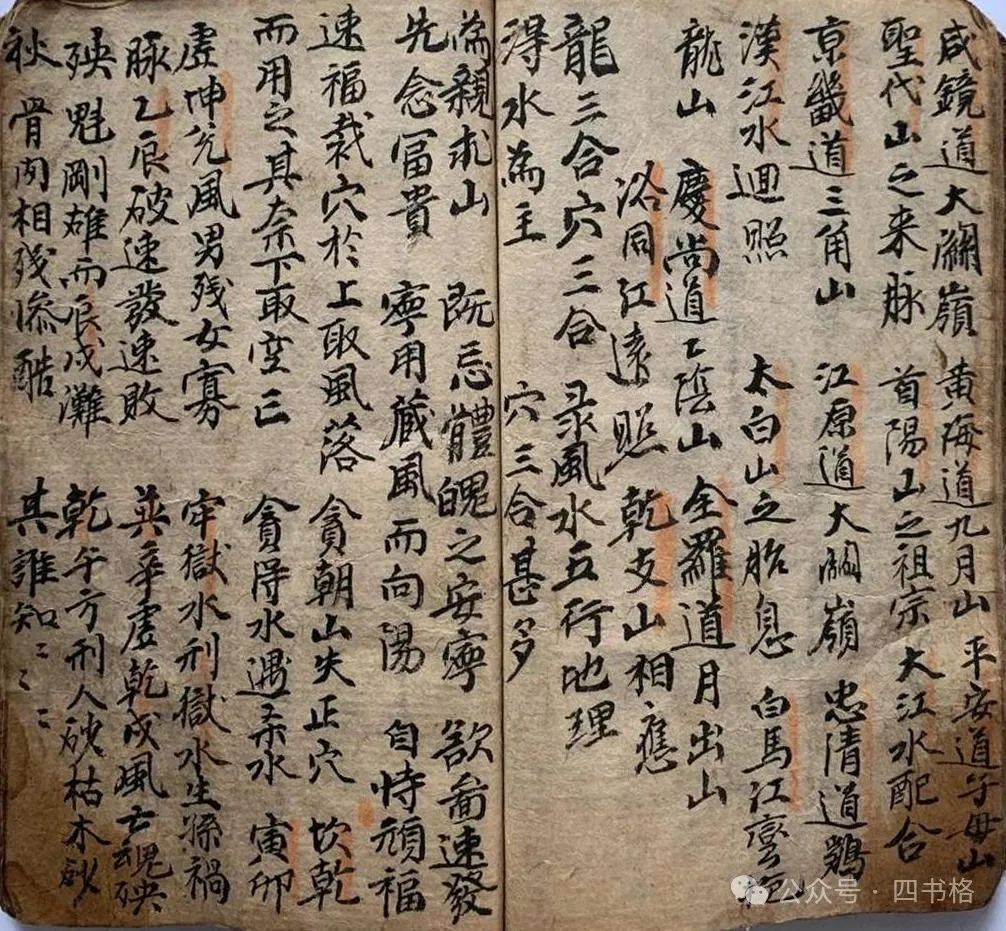 咸鏡道大關嶺 黃海道九月山 平安道子母山
聖代山之来脉 首陽山之祖宗 大江水配合
京畿道三角山 江原道大關嶺 忠清道鷄
漢江水迴照 太白山之胎息 白馬江
龍山 慶尚道乙陰山 全羅道月出山
洛同江遠照 乾支山相應
龍三合穴三合 录風水五行地理
得水為主 穴三合甚多
為親求山 既忌體魄之安寧 欲啚速發
先念冨貴 寧用蔵風而向陽 自恃頑福
速福裁穴於上取風落 貪朝山失正穴 坎乾
而用之其奈下取空亡 貪得水遇杀水 寅卯
虚坤兊風男残女寡 牢獄水刑獄水生孫禍
脉乙艮破速發速敗 巽辛虚乾戌風亡魂殃
殃魁剛雄而艮戌灘 乾午方刑人砂枯木砂
秋 骨肉相残慘酷 其誰知〻〻〻
公众号·四书格